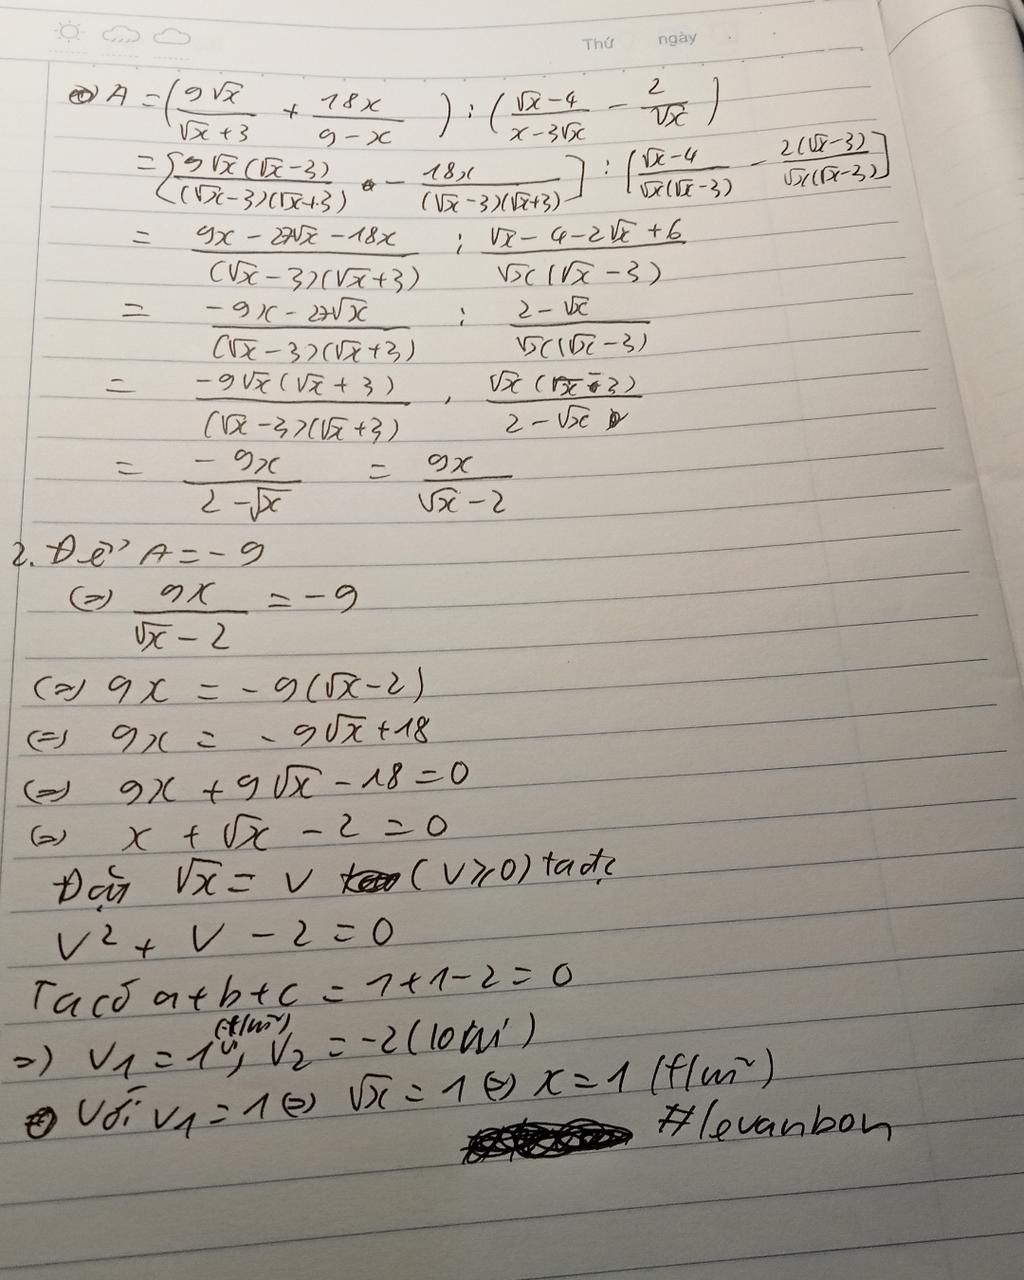 Thứ ngày
A = (9√x/(√x+3) + 18x/(9-x)) : ((√x-4)/(x-3√x) - 2/√x)
= [9√x(√x-3)/((√x-3)(√x+3)) - 18x/((√x-3)(√x+3))] : [(√x-4)/(√x(√x-3)) - 2(√x-3)/(√x(√x-3))]
= (9x - 27√x - 18x)/((√x-3)(√x+3)) : (√x - 4 - 2√x + 6)/(√x(√x-3))
= (-9x - 27√x)/((√x-3)(√x+3)) : (2-√x)/(√x(√x-3))
= -9√x(√x+3)/((√x-3)(√x+3)) . √x(√x-3)/(2-√x)
= -9x/(2-√x) = 9x/(√x-2)
2. Để A = -9
(=) 9x/(√x-2) = -9
(=) 9x = -9(√x-2)
(=) 9x = -9√x+18
(=) 9x + 9√x - 18 = 0
(=) x + √x - 2 = 0
Đặt √x = V (V⩾0) ta đc
V² + V - 2 = 0
Ta có a+b+c = 1+1-2 = 0
=) V1 = 1 (t/m), V2 = -2 (loại)
Với V1 = 1 (=) √x = 1 (=) x = 1 (t/m)
#levanbon